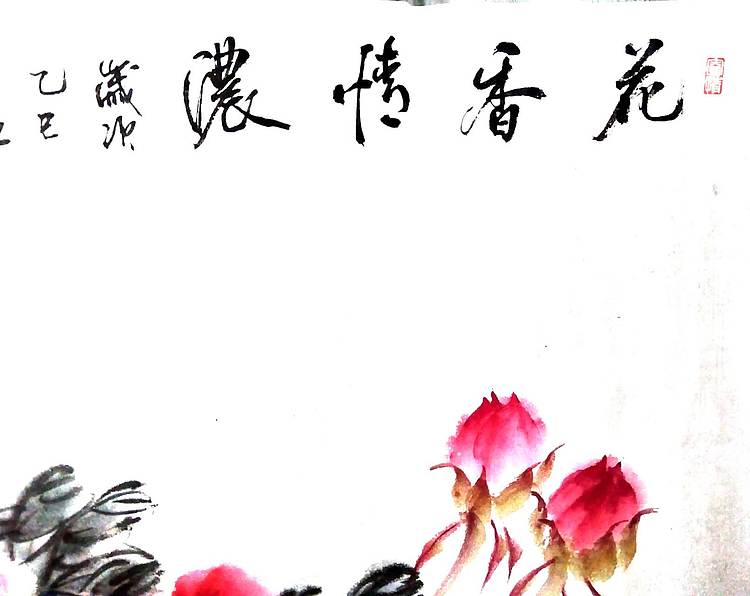 花香情濃
歲次
乙巳